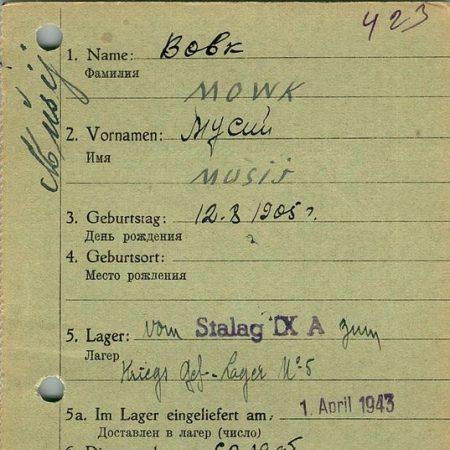 423
Musij
1. Name: Вовк
Фамилия
MOWK
2. Vornamen: Мусий
Имя
MUSIJ
3. Geburtstag: 12.8 1905 г.
День рождения
4. Geburtsort:
Место рождения
5. Lager: vom Stalag IX A zum
Лагер
Kriegs Gef.-Lager No 5
5a. Im Lager eingeliefert am, 1. April 1943
Доставлен в лагер (число)